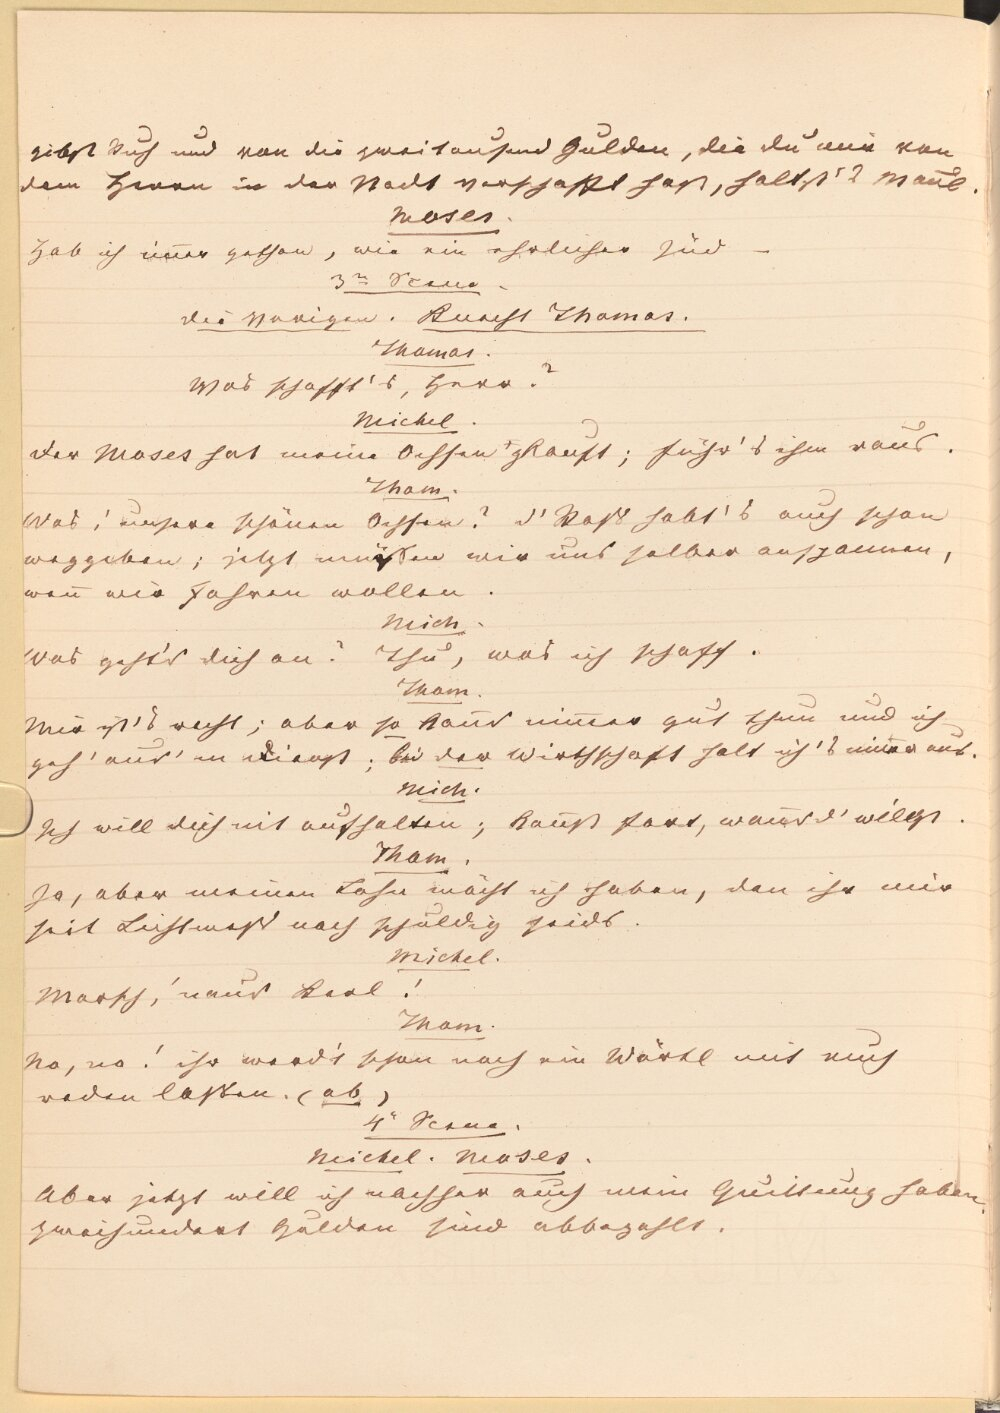 gibst Ruh und von die zweitausend Gulden, die du mir von
dem Herrn in der Stadt verschafft hast, haltst 's Maul.
Moses.
Hab ich immer gethan, wie ein ehrlicher Jüd —
3te Scene.
Die Vorigen. Knecht Thomas.
Thomas.
Was schafft's, Herr?
Michel.
Der Moses hat meine Ochsen 'kauft; führ's ihm raus.
Thom.
Was! unsere schönen Ochsen? d' Roß habt's auch schon
weggeben; jetzt müssen wir uns selber anspannen,
wenn wir fahren wollen.
Mich.
Was geht's dich an? Thu, was ich schaff.
Thom.
Mir ist's recht; aber so kanns nimmer gut thun und ich
geh' aus'm Dienst; bei der Wirthschaft halt ich's nimmer aus.
Mich.
Ich will dich nit aufhalten; kannst fort, wanns d' willst.
Thom.
Ja, aber meinen Lohn möcht ich haben, den ihr mir
seit Lichtmeß noch schuldig seids.
Michel.
Marsch, 'naus Kerl!
Thom.
No, no! ihr werd's schon noch ein Wörtl mit euch
reden lassen. (ab)
4e Scene.
Michel. Moses.
Aber jetzt will ich nachher auch mein Quittung haben,
zweihundert Gulden sind abbezahlt.